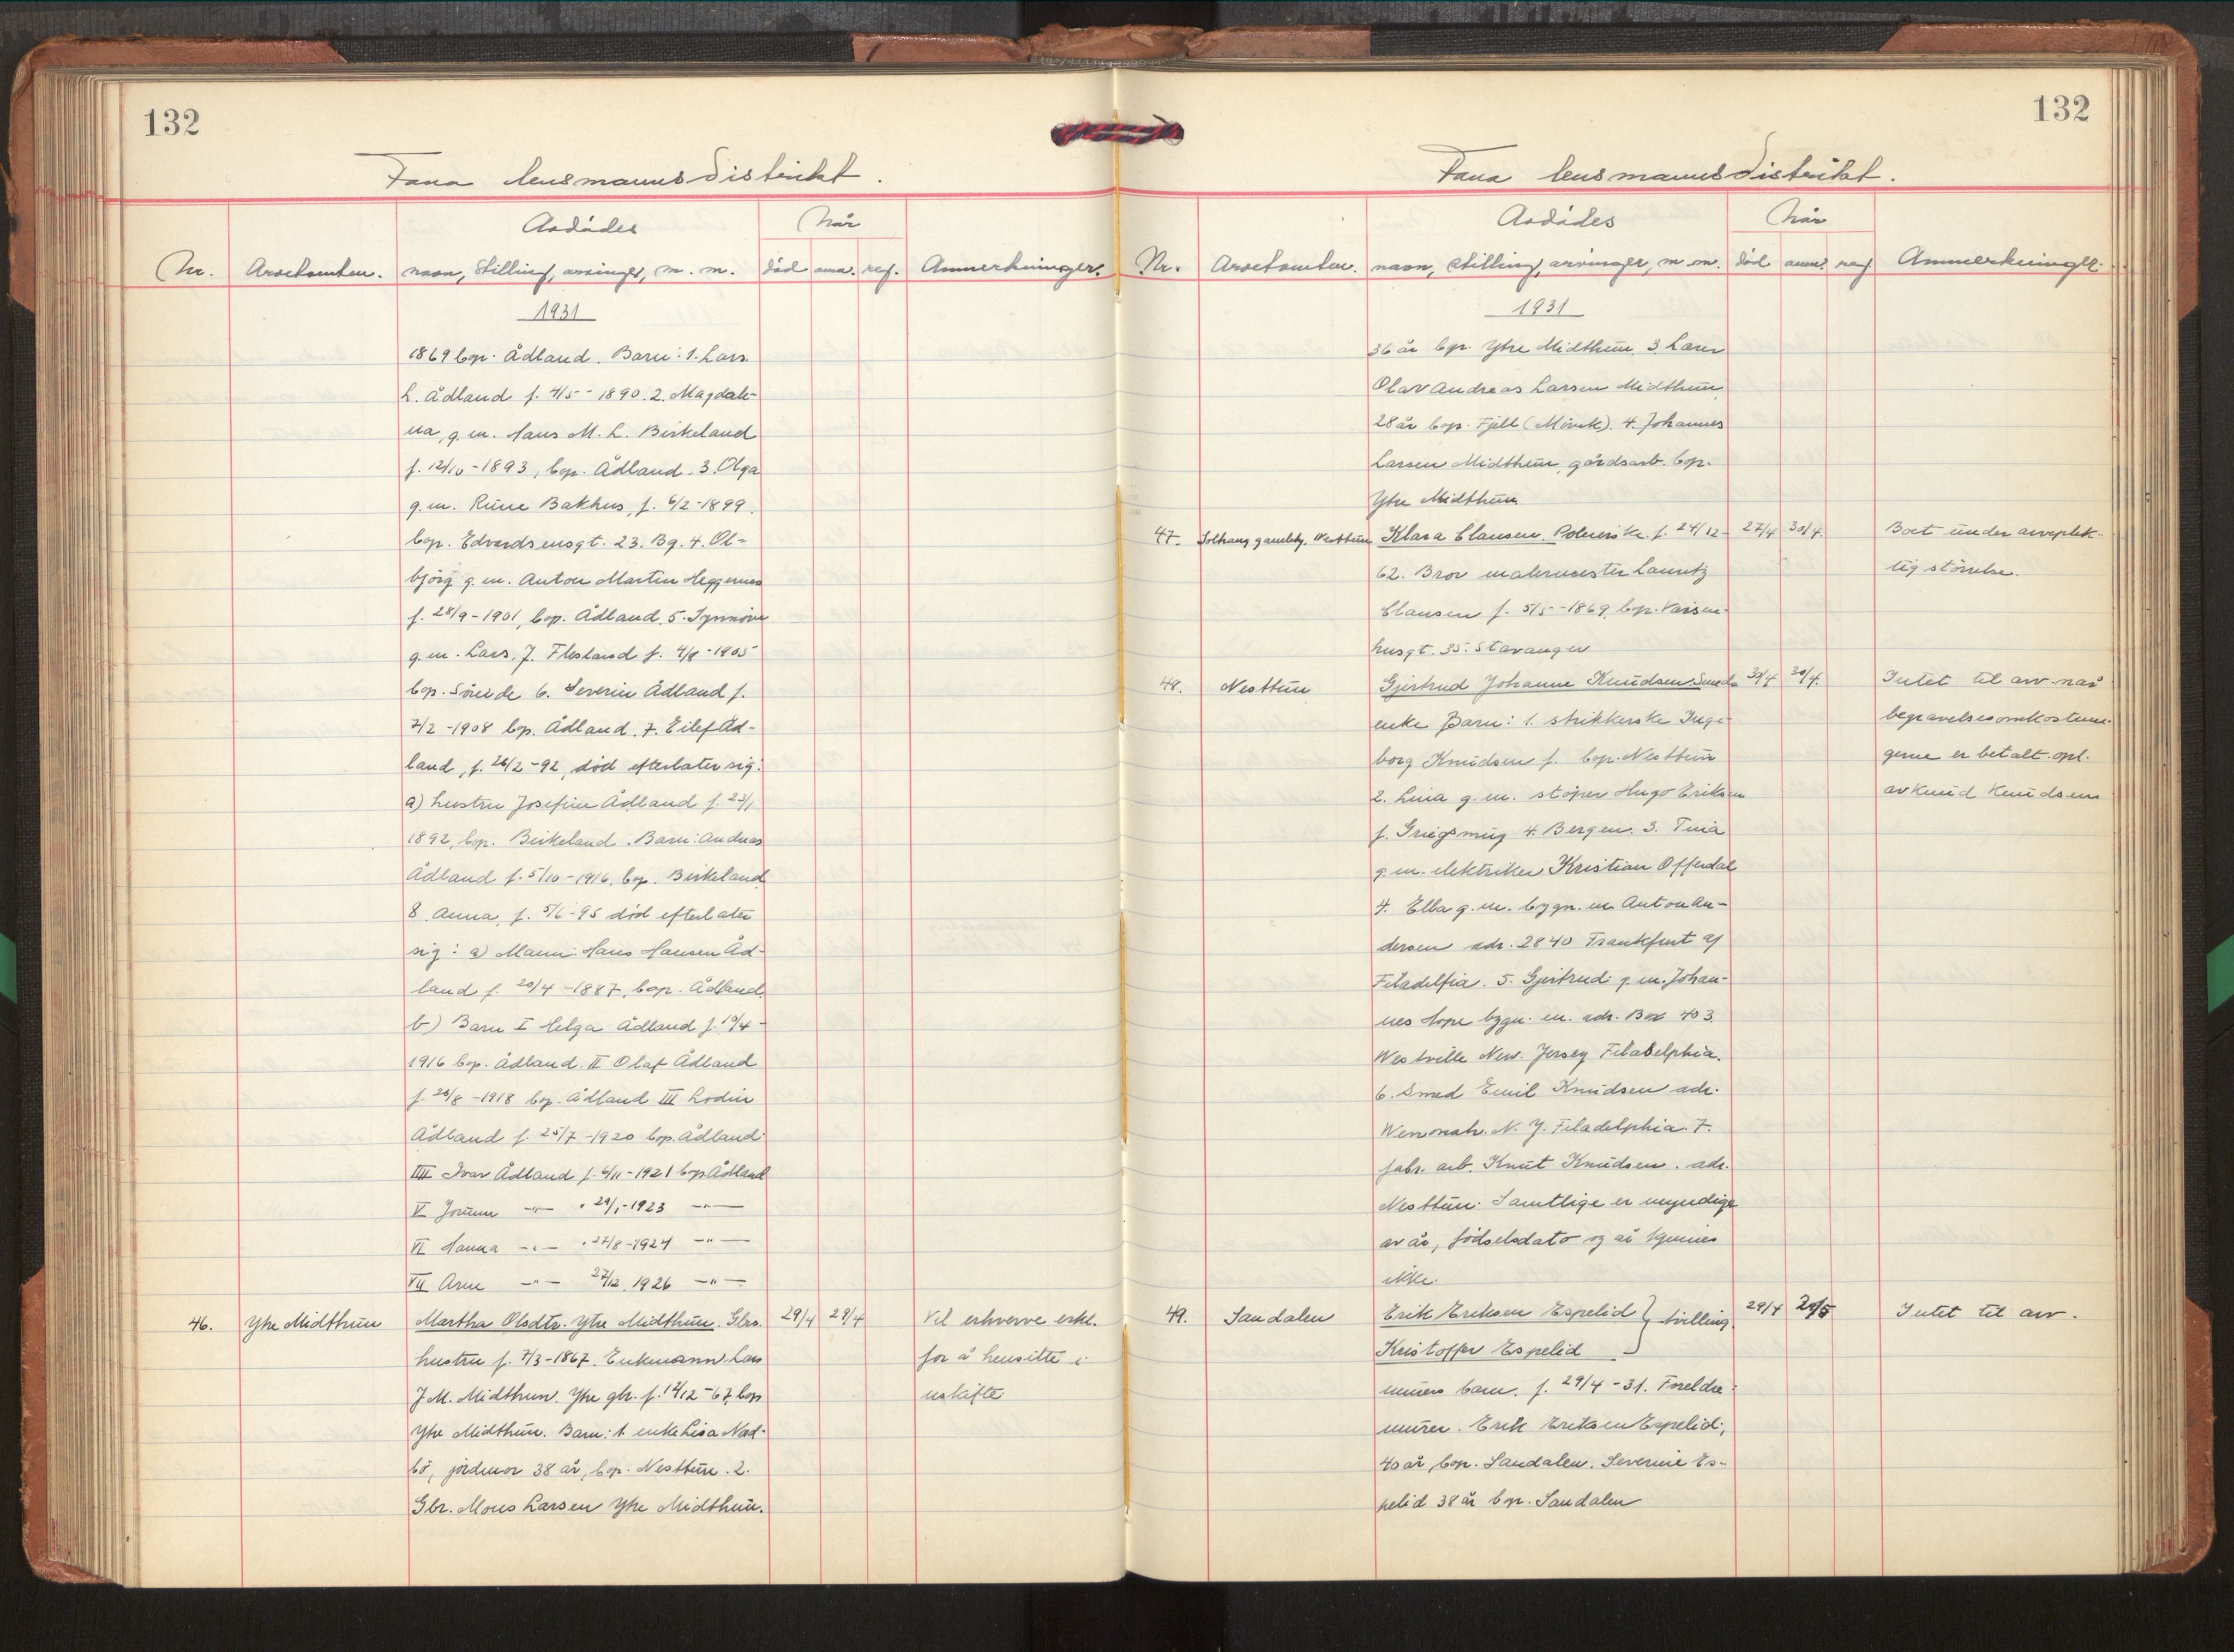 132
Fana lensmannsdistrikt.
Avdødes
Når
Nr. Arvetomten. navn, stilling, arvinger, m. m. død anm. reg. Anmerkninger.
1931
1869 bop. Ådland. Barn: 1. Lars
L. Ådland f. 4/5 - 1890. 2. Magdale-
na, g. m. Hans M. L. Birkeland
f. 12/10 - 1893, bop. Ådland. 3. Olga
g. m. Rune Bakhus, f. 6/2 - 1899.
bop. Edvardsensgt. 23. Bg. 4. Ol-
björg g. m. Anton Martin Heggernes
f. 28/9 - 1901, bop. Ådland. 5. Synnöve
g. m. Lars J. Flesland f. 4/8 - 1905
bop. Söreide 6. Severin Ådland f.
7/2 - 1908 bop. Ådland. 7. Eilef Åd-
land, f. 26/2 - 92, död efterlater sig:
a) hustru Josefine Ådland f. 23/1
1892, bop. Birkeland. Barn: Andreas
Ådland f. 5/10 - 1916, bop. Birkeland
8. Anna, f. 5/6 - 95 död efterlater
sig: a) Mann: Hans Hansen Åd-
land f. 20/4 - 1887, bop. Ådland.
b) Barn I Helga Ådland f. 10/4 -
1916 bop. Ådland. II Olaf Ådland
f. 26/8 - 1918 bop. Ådland III Lodin
Ådland f. 25/7 - 1920 bop. Ådland
IIII Ivar Ådland f. 6/11 - 1921 bop. Ådland
V Jorunn -"- " 29/1 - 1923 -"-
VI Hanna -"- " 27/8 - 1924 -"-
VII Arne -"- 27/12. 1926 -"-
46. Ytre Midthun Martha Olsdtr. Ytre Midthun. Gbrs. 29/4 29/4 Vil erhverve erkl.
hustru f. 7/3 - 1867. Enkmann Lars for å hensitte i
J. M. Midthun. Ytre gbr. f. 14/12 - 67, bop uskifte
Ytre Midthun. Barn: 1. enke Lisa Nad-
bö, jordmor 38 år, bop. Nesttun. 2.
Gbr. Mons Larsen Ytre Midthun.
132
Fana lensmannsdistrikt.
Avdødes
Når
Nr. Arvetomten. navn, stilling, arvinger, m. m. død anm. reg Anmerkninger.
1931
36 år bop. Ytre Midthun. 3. Lærer
Olav Andreas Larsen Midthun,
28 år bop. Fjell 4. Johannes
Larsen Midthun, gårdsarb. bop.
Ytre Midthun
47. Solhaug gamlehj. Nesttun Klara Clausen. f. 24/12 - 27/4 30/4. Boet under arveplik-
62. Bror malermester Lauritz tig störrelse.
Clausen f. 5/5 - 1869, bop. Vaisen-
husgt. 35. Stavanger
48. Nesttun Gjertrud Johanne Knudsen. Smeds 30/4 30/4. Intet til arv når
enke Barn: 1. strikkerske Inge- begravelsesomkostnin-
borg Knudsen f. bop. Nesttun gerne er betalt. opl.
2. Lina g. m. stöper Hugo Eriksen av Knud Knudsen
f. Griegsmug 4. Bergen. 3. Tina
g. m. elektriker Kristian Offerdal
4. Ella g. m. bygn. m. Anton An-
dersen adr. 2840 Frankfurt af
Filadelfia. 5. Gjertrud g. m. Johan-
nes Hope bygn. m. adr. Box 403
Westville New. Jersey Filadelphia.
6. Smed Emil Knudsen adr.
Wenonah. N. J. Filadelphia. 7.
fabr. arb. Knut Knudsen. adr.
Nesttun. Samtlige er myndige
av år, födselsdato og år kjennes
ikke.
49. Sandalen Erik Eriksen Espelid } tvilling 29/4 29/5 Intet til arv.
Kristoffer Espelid
murers barn. f. 29/4 - 31. Foreldre:
murer. Erik Eriksen Espelid,
40 år, bop. Sandalen. Severine Es-
pelid 38 år bop. Sandalen